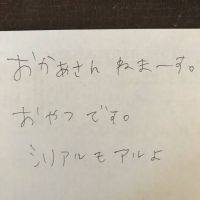 おかあさん ねまーす。
おやつです。
シリアルモアルよ